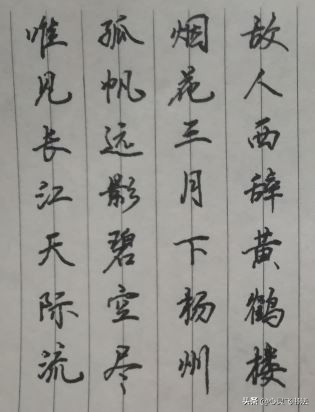 故人西辞黄鹤楼
烟花三月下杨州
孤帆远影碧空尽
唯见长江天际流